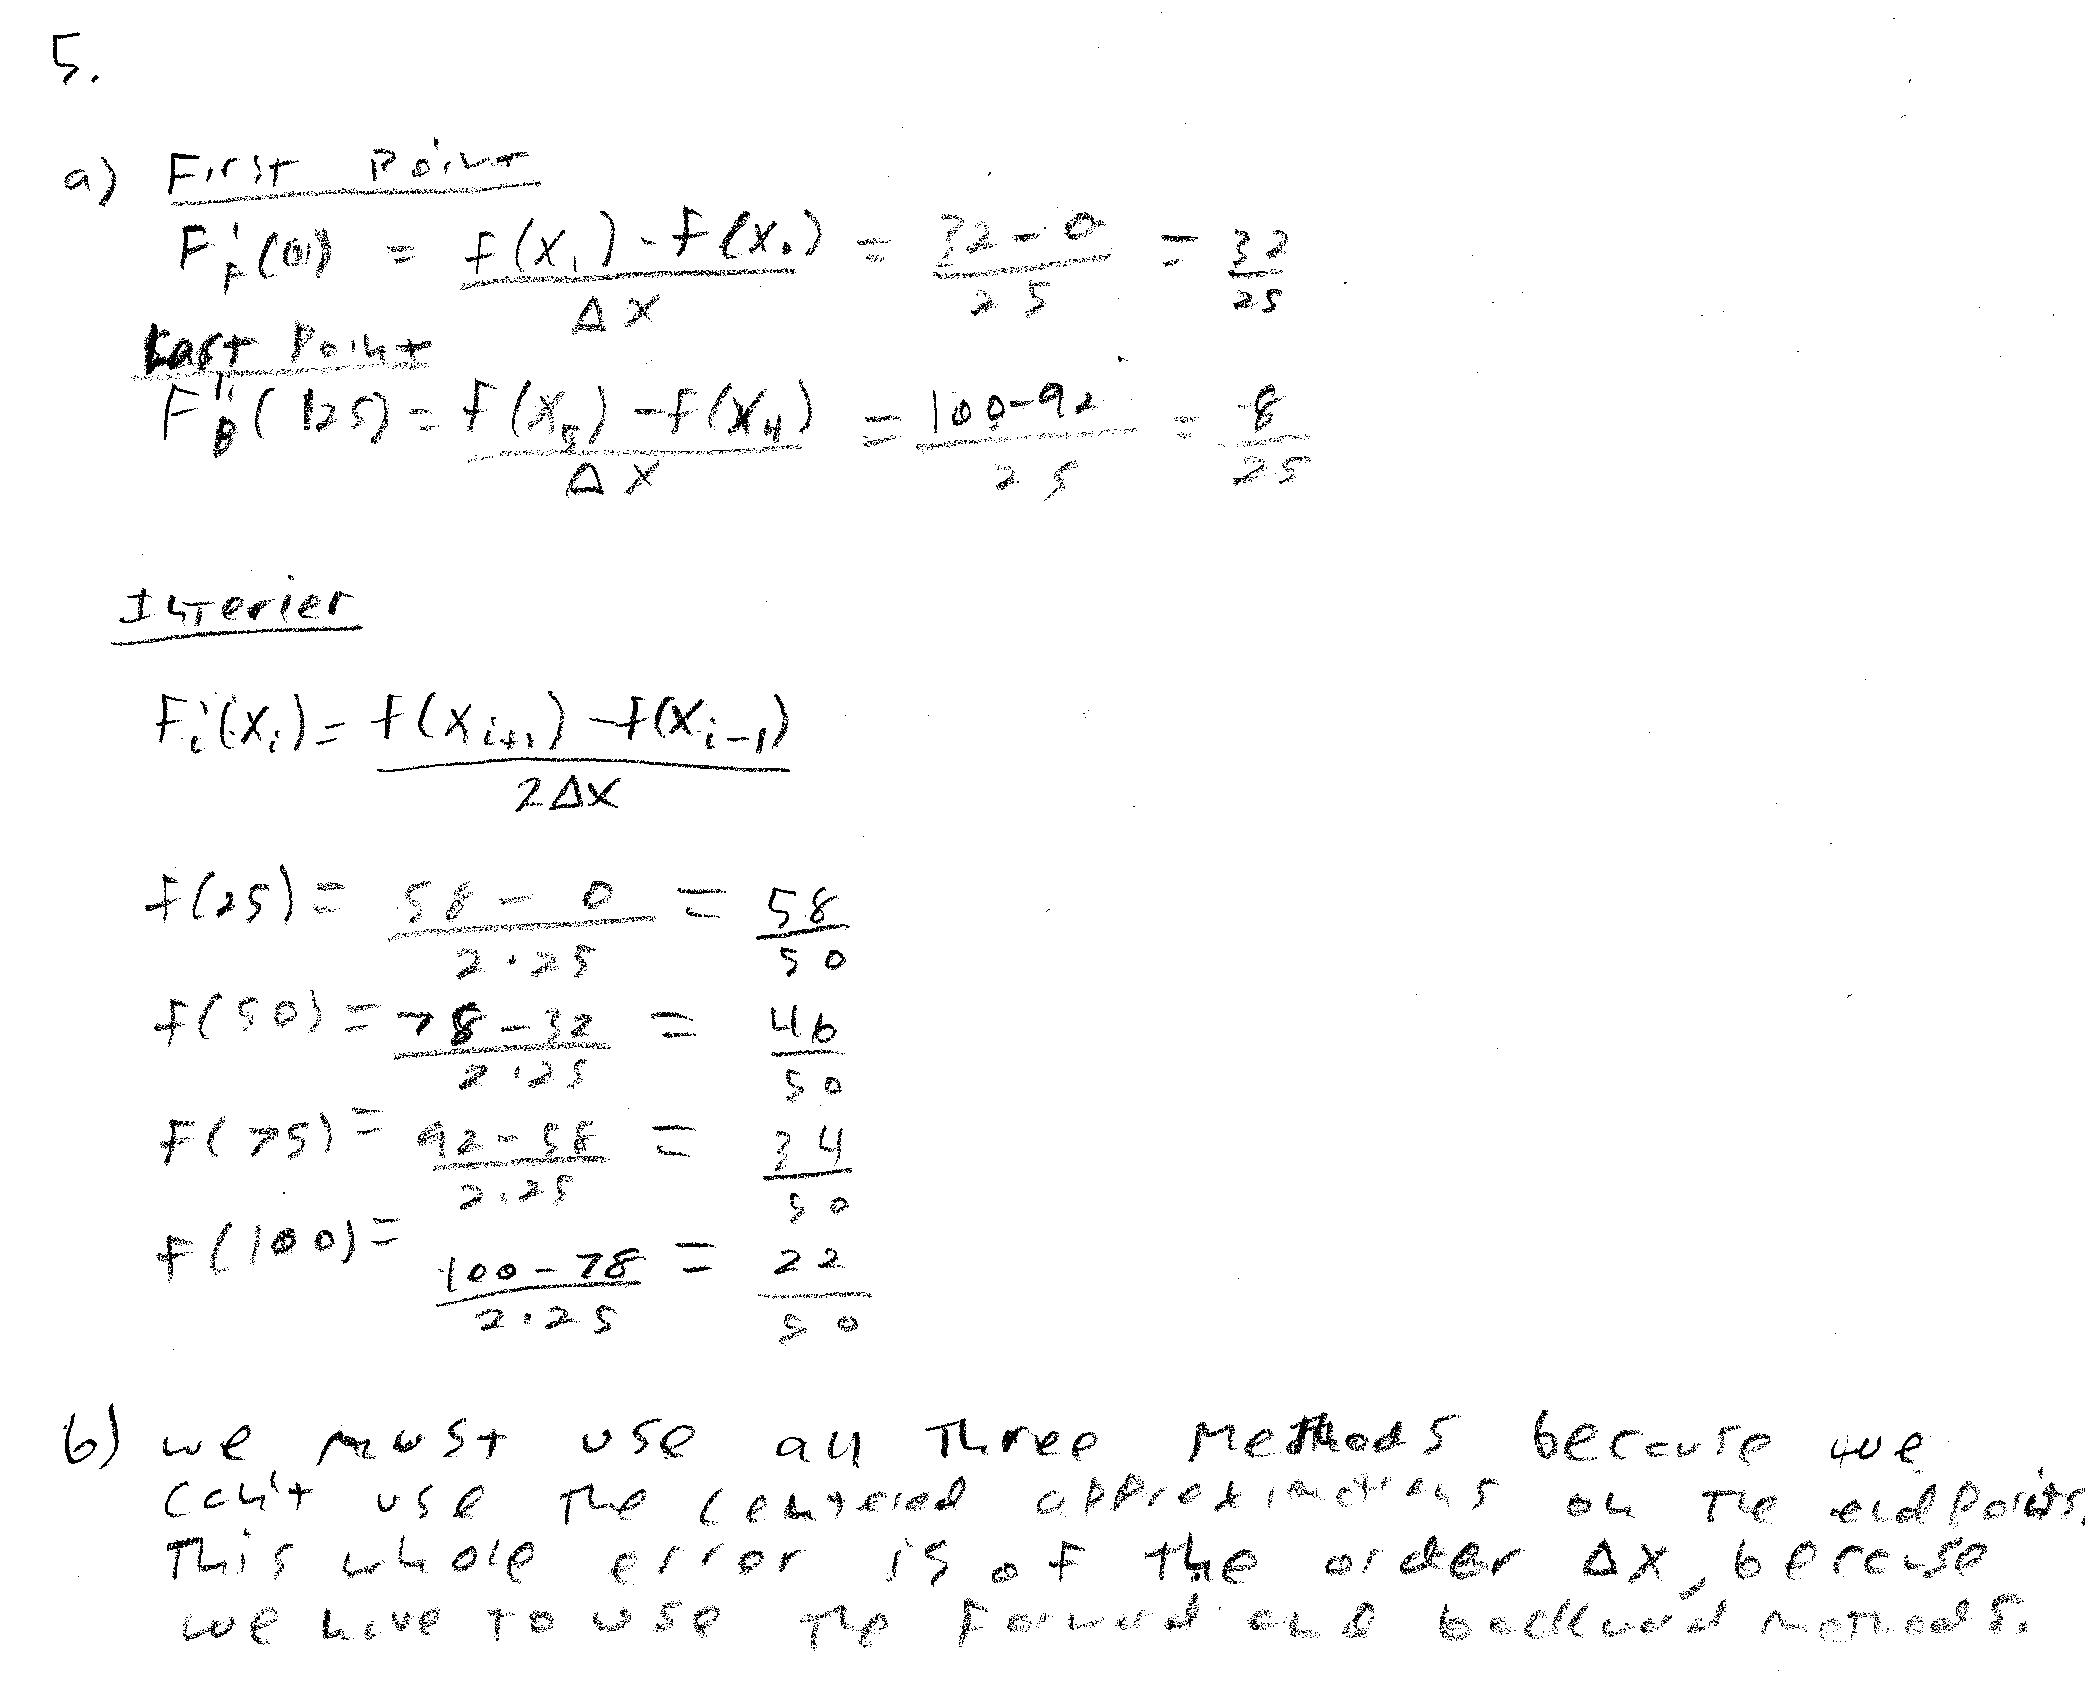 5.
a) First Point
F'_F(0) = (f(x_1) - f(x_0)) / Δx = (32 - 0) / 25 = 32/25
Last Point
F'_B(125) = (f(x_5) - f(x_4)) / Δx = (100 - 92) / 25 = 8/25
Interier
F_i'(x_i) = (f(x_{i+1}) - f(x_{i-1})) / 2Δx
f(25) = (58 - 0) / (2·25) = 58/50
f(50) = (78 - 32) / (2·25) = 46/50
f(75) = (92 - 58) / (2·25) = 34/50
f(100) = (100 - 78) / (2·25) = 22/50
b) we must use all Three Methods because we
can't use the centered approximations on the endpoints.
This whole error is of the order Δx, because
we have to use the Forward and backward methods.